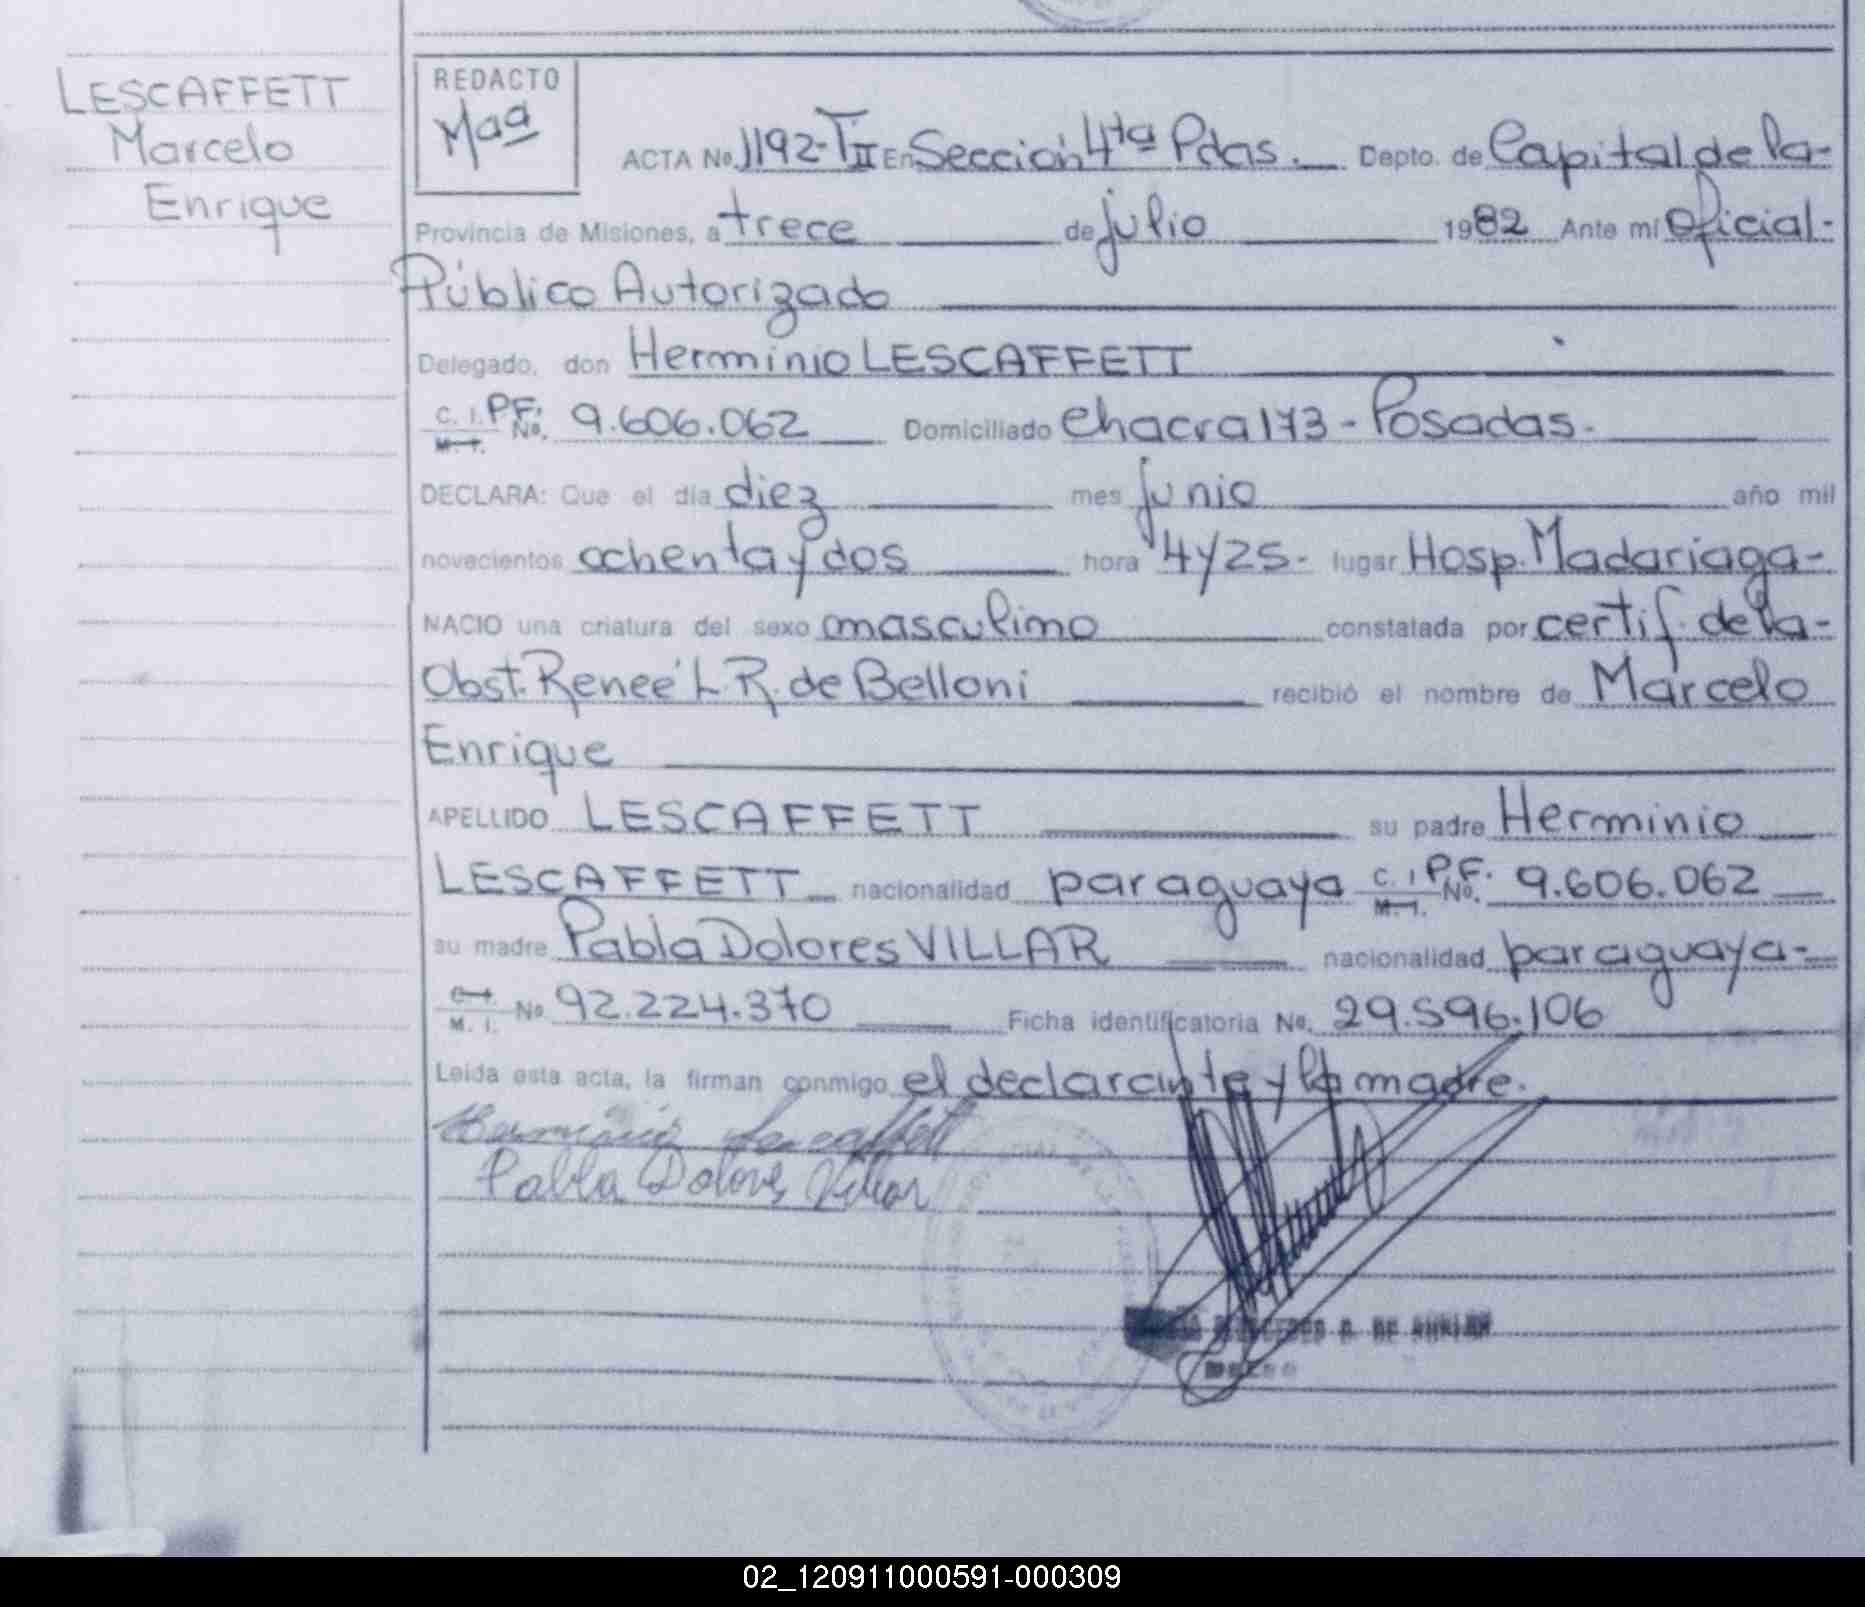 LESCAFFETT
Marcelo
Enrique
REDACTO
Maª
ACTA No. 1192-TII En Sección 4ta Pdas. Depto. de Capital de la-
Provincia de Misiones, a trece de julio 1982 Ante mí Oficial-
Público Autorizado
Delegado, don Herminio LESCAFFETT
C. I. PF. No. 9.606.062 Domiciliado Chacra 173 - Posadas.
M. I.
DECLARA: Que el día diez mes junio año mil
novecientos ochenta y dos hora 4y25- lugar Hosp. Madariaga-
NACIO una criatura del sexo masculino constatada por certif. de la-
Obst. Reneé L R. de Belloni recibió el nombre de Marcelo
Enrique
APELLIDO LESCAFFETT su padre Herminio
LESCAFFETT nacionalidad paraguaya C. I. P.F. No. 9.606.062
M. I.
su madre Pabla Dolores VILLAR nacionalidad paraguaya-
C. I. M. I. No. 92.224.370 Ficha identificatoria No. 29.596.106
Leída esta acta, la firman conmigo el declarante y la madre.
Herminio Lescaffett
Pabla Dolores Villar
02_120911000591-000309